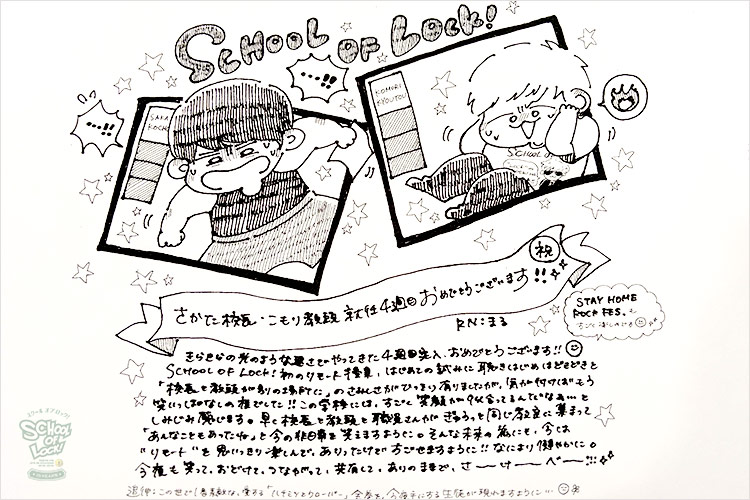 SCHOOL OF LOCK!
‥‥!!
‥‥!!
SAKA
KOCH
KOMORI
KYOUTOU
SCHOOL OF
祝
さかた校長・こもり教頭 就任4週目 おめでとうございます!!
RN:まる
STAY HOME
ROCK FES.
のような てやってきた4週目突入、おめでとうございます!!
SCHOOL OF LOCK! 初のリモート授業、はじめての試みに 聴きはじめはどきどきと
「校長と教頭が別の場所に」のさみしさがひっそりありましたが、気が付けばもう
笑いっぱなしの でした!!この学校には、すごく笑顔が似合ってるんだなぁ…と
しみじみ感じます。早く校長と教頭と職員さんがぎゅうっと同じ教室に集まって
「あんなこともあったね」と今の非日常を笑えますように。そんな未来の為にも、今は
"リモート"を思いっきり楽しんで、ありったけですごせますように!!なにより健やかに。
今夜も笑って、おどけて、つながって、共有して、ありのままで、さーーけーーべーー!!!
追伸:この世で1番素敵な、愛する
SCHOOL OF LOCK!